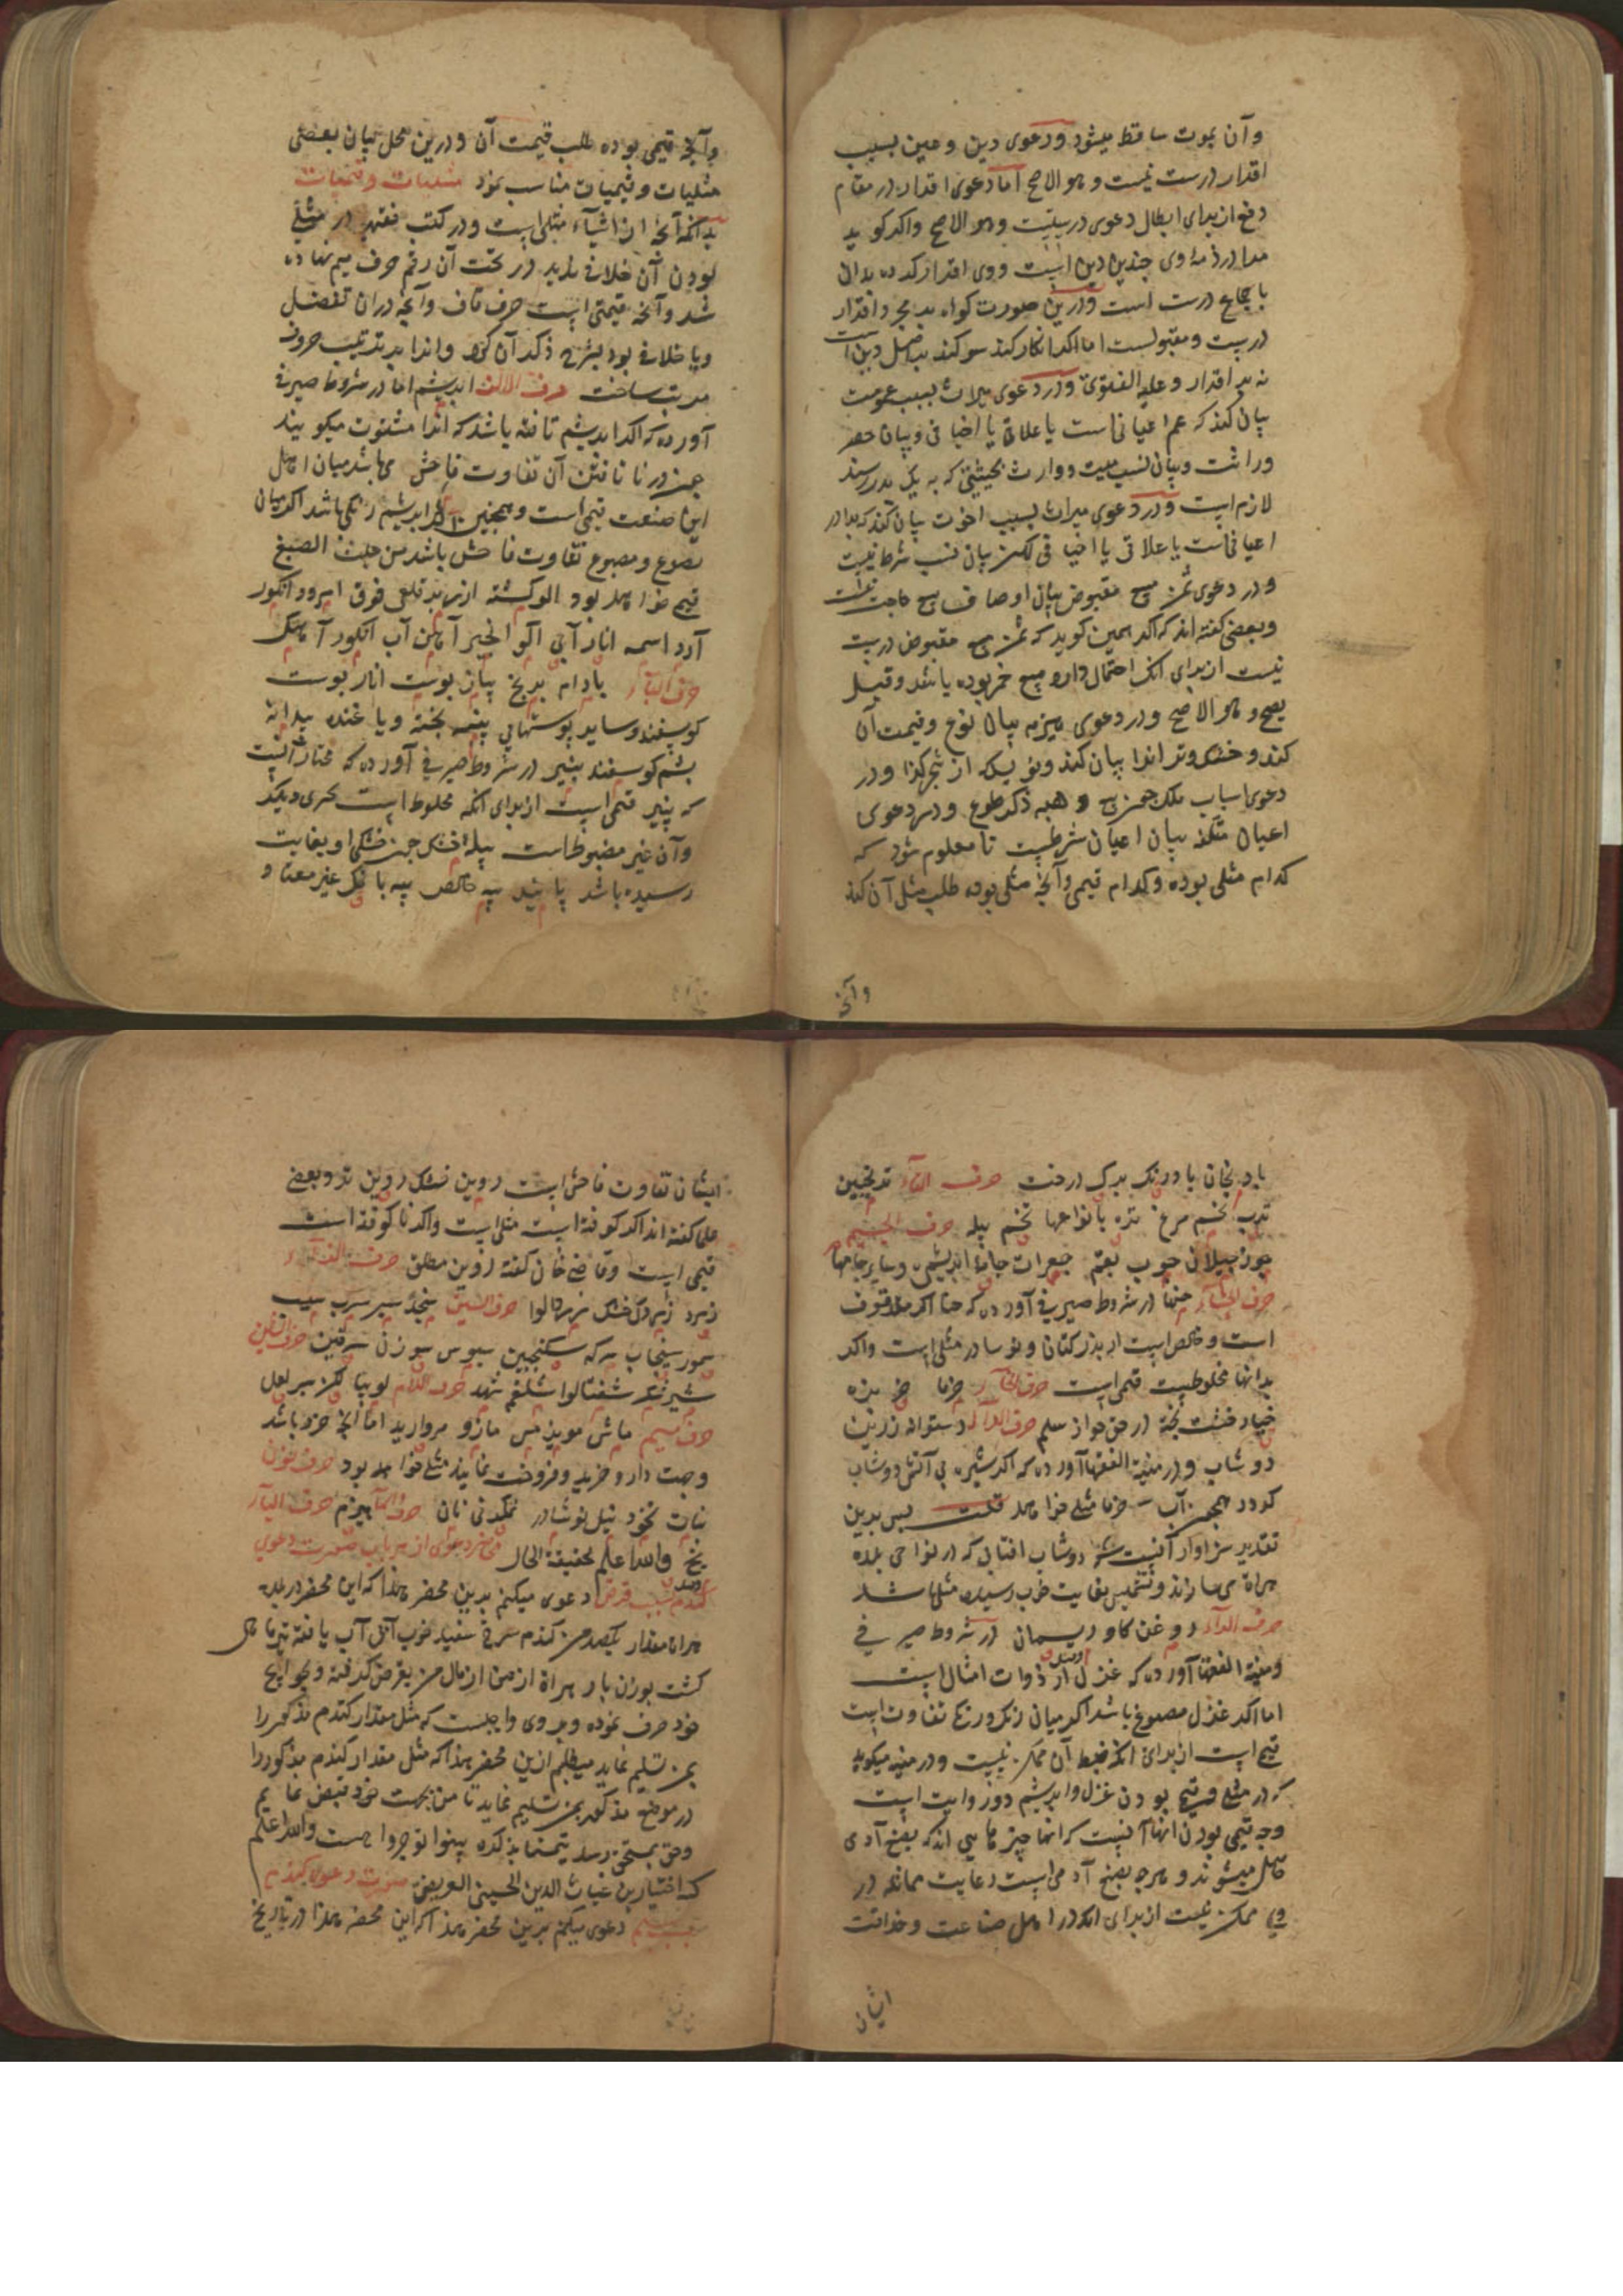 وآن بموت ساقط میشود ودعوی دین وعین بسبب
اقرار درست نیست وهو الاصح اما دعوی اقرار در مقام
دفع از برای ابطال دعوی درستست وهو الاصح واکر کوید
مرا در ذمهٔ وی چندین دین است ووی اقرار کرده بدان
باجماع درست است ودرین صورت کواه بر مجرد اقرار
درست ومقبولست اما اکر انکار کند سوکند بر اصل دین است
نه بر اقرار وعلیه الفتوی ودر دعوی میراث بسبب عمومت
بیان کند که عم اعیانی است یا علاتی یا اخیافی وبیان حصر
وراثت وبیان نسب میت ووارث بحیثیتی که به یک پدر رسند
لازم است ودر دعوی میراث بسبب اخوت بیان کند که برادر
اعیانی است یا علاتی یا اخیافی لکن بیان نسب شرط نیست
ودر دعوی ثمن مبیع مقبوض بیان اوصاف مبیع حاجت نیست
وبعضی کفته اند که اکر همین کوید که ثمن مبیع مقبوض درست
نیست از برای انکه احتمال دارد مبیع خمر بوده باشد وقیل
یصح وهو الاصح ودر دعوی هیزم بیان نوع وقیمت آن
کند وخشک وتر انرا بیان کند ونویسد که از شجر کذا ودر
دعوی اسباب ملک چون بیع وهبه ذکر طوع ودر دعوی
اعیان متلفه بیان اعیان شرطست تا معلوم شود که
کدام مثلی بوده وکدام قیمی وآنچه مثلی بوده طلب مثل آن کند
وآنچه
وآنچه قیمی بوده طلب قیمت آن ودرین محل بیان بعضی
مثلیات وقیمیات مناسب نمود مثلیات وقیمیات
بدانکه آنچه از اشیاء مثلی است ودر کتب فقهیه در مثلی
بودن آن خلافی ندارد در تحت آن رقم حرف میم نهاده
شد وآنچه قیمتی است حرف قاف وآنچه دران تفصیل
ویا خلافی بود بشرح ذکر آن کرد وانرا بر ترتیب حروف
مرتب ساخت حرف الالف ابریشم اما در شروط صیرفی
آورده که اکر ابریشم تافته باشد که انرا مشفوت میکویند
چون در تافتن آن تفاوت فاحش می باشد میان اهل
این صنعت قیمی است وهمچنین اکر ابریشم رنکی باشد اکر میان
مصبوغ ومصبوغ تفاوت فاحش باشد من حیث الصبغ
قیمی خواهد بود آلو کشته ارزیز قلعی فوق امرود انکور
آرد اسمه انار آبی الو انجیر آهن آب انکور آهک
حرف الباء بادام برنج پیاز پوست انار پوست
کوسفند وسایر پوستهای پنبه پخته ویا غنده بیدانه
پشم کوسفند پنیر در شروط صیرفی آورده که مختار آنست
که پنیر قیمی است از برای انکه مخلوط است بچیزی دیکر
وآن غیر مضبوط است پیلهٔ خشک چون خشکی او بغایت
رسیده باشد پانید پیه خالص پیه با نمک غیر معتاد
بادنجان بادرنک برک درخت حرف التاء ترنجبین
ترب تخم مرغ تره بانواعها تخم پیله حرف الجیم
جوز جیلان چوب بقم جغرات جامهٔ ابریشمی وسایر جامها
حرف الحاء حنا در شروط صیرفی آورده که حنا اکر مدقوق
است وخالص است از بذر کتان ونوسادر مثلی است واکر
بدانها مخلوطست قیمی است حرف الخاء خرما خربزه
خیار خشت پخته در حق جواز سلم حرف الدال دستوانه زرین
دوشاب ودر منیة الفقها آورده که اکر شیره بی آتش دوشاب
کردد همچون آب خرما مثلی خواهد قلت پس بدین
تقدیر سزاوار آنست که دوشاب افتابی که در نواحی بلده
هراة می سازند وتشمیس بغایت خوب رسیده مثلی باشد
حرف الراء روغن کاو ریسمان در شروط صیرفی
ومنیة الفقها آورده که غزل از ذوات امثال است
اما اکر غزل مصبوغ باشد اکر میان رنک ورنک تفاوت است
قیمی است از برای انکه ضبط آن ممکن نیست ودر منیه میکوید
که در مثلی وقیمی بودن غزل وابریشم دو روایت است
وجه قیمی بودن انها آنست که انها چیزهایی اند که بصنع آدمی
حاصل میشوند وهرچه بصنع آدمی است رعایت مماثله در
وی ممکن نیست از برای انکه در اهل صناعت وحذاقت
ایشان
ایشان تفاوت فاحش است روین خشک روین تر وبعضی
علما کفته اند اکر کوفته است مثلی است واکر ناکوفته است
قیمی است وقاضی خان کفته روین مطلق حرف الزاء
زمرد زردک خشک زردالو حرف السین سنجد سیر سرب سیب
سمور سنجاب سرکه سکنجبین سبوس سوزن سرقین حرف الشین
شیر شکر شفتالو شلغم شهد حرف اللام لوبیا لکن سر لعل
حرف میم ماش مویز مس مازو مروارید اما آنچه خرد باشد
وجهت دارو خرید وفروخت نمایند مثلی خواهد بود حرف نون
نبات نخود نیل نوشادر نمک نی نان حرف الهاء هیزم حرف الیاء
یخ والله اعلم بحقیقة الحال
کندم بسبب قرض دعوی میکنم بدین محضر هذا که این محضر در بلده
هراة مقدار یکصد من کندم سرخ سفید خوب آبی آب یافته تیرماهی
کشت بوزن بار هراة از من از مال من بقرض کرفته وبحوایج
خود صرف نموده وبر وی واجبست که مثل مقدار کندم مذکور را
بمن تسلیم نماید میطلبم ازین محضر هذا که مثل مقدار کندم مذکور را
در موضع مذکور بمن تسلیم نماید تا من بجهت خود قبض نمایم
وحق بمستحق رسد بینوا توجروا والله اعلم
که اختیار بن غیاث الدین الحسینی صورت دعوی کندم
بسبب سلم دعوی میکنم برین محضر هذا که این محضر هذا در تاریخ